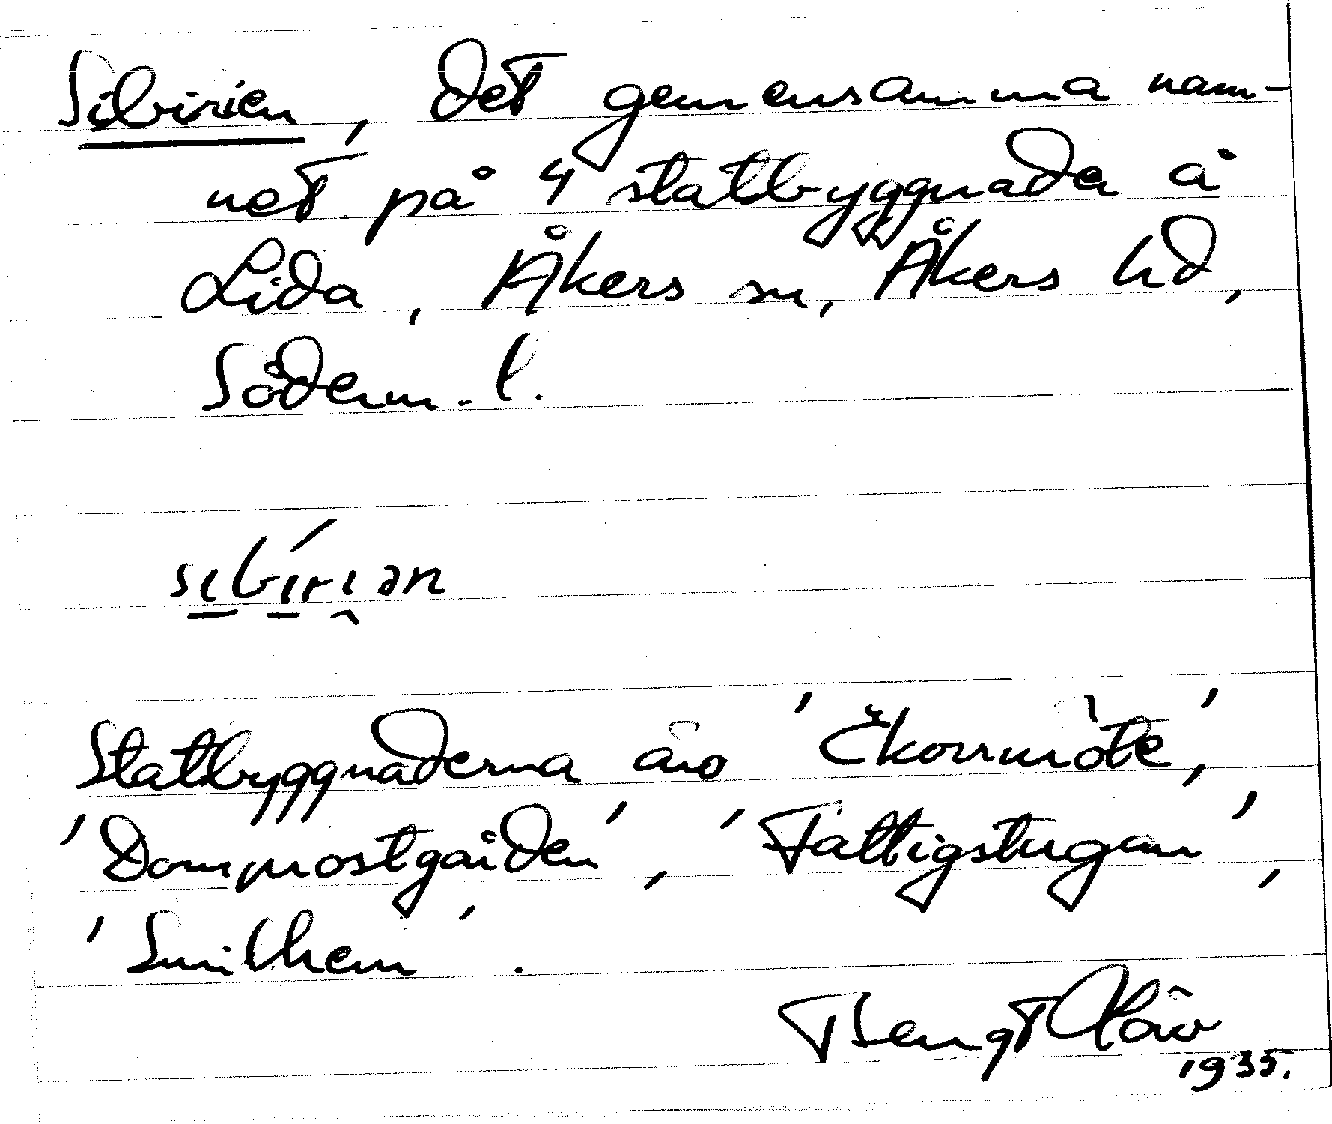 Sibirien, det gemensamma nam-
net på 4 statbyggnader å
Lida, Åkers sn, Åkers hd,
Söderm. l.
sıbı́rıən
Statbyggnaderna äro 'Ekorrmöte',
'Domprostgården', 'Fattigstugan',
'Smilhem'.
Bengt
1935.